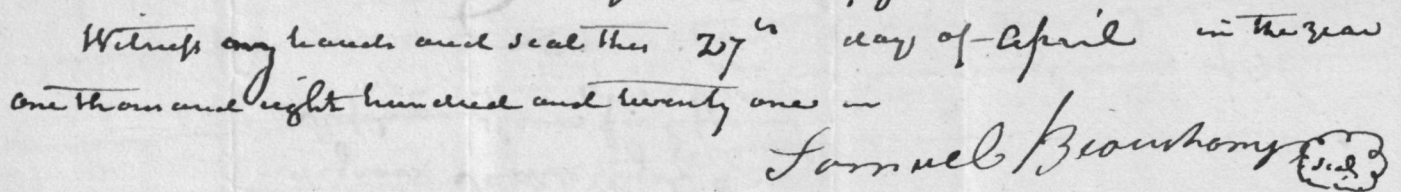 Witness my hand and seal this 27th day of April in the year
one thousand eight hundred and twenty one
Samuel Beauchamp seal